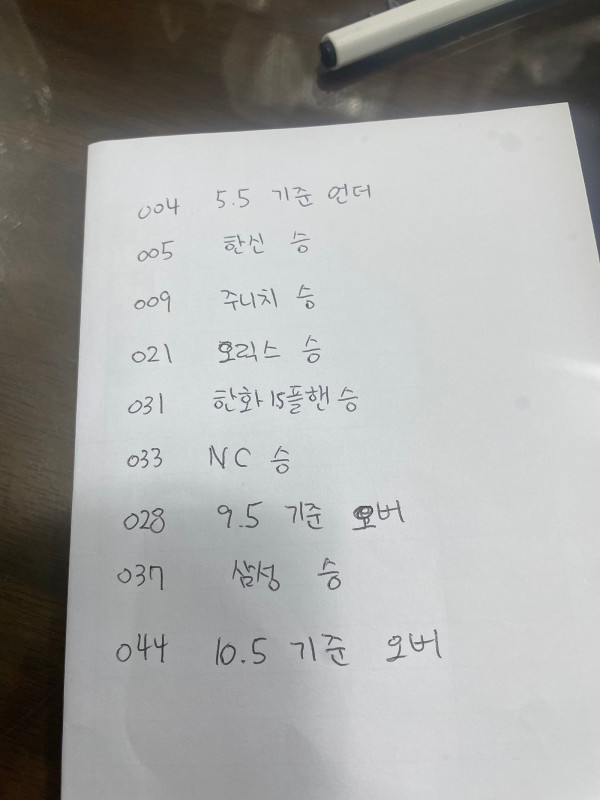 004 5.5 기준 언더
005 한신 승
009 주니치 승
021 오릭스 승
031 한화 15플핸 승
033 NC 승
028 9.5 기준 오버
037 삼성 승
044 10.5 기준 오버